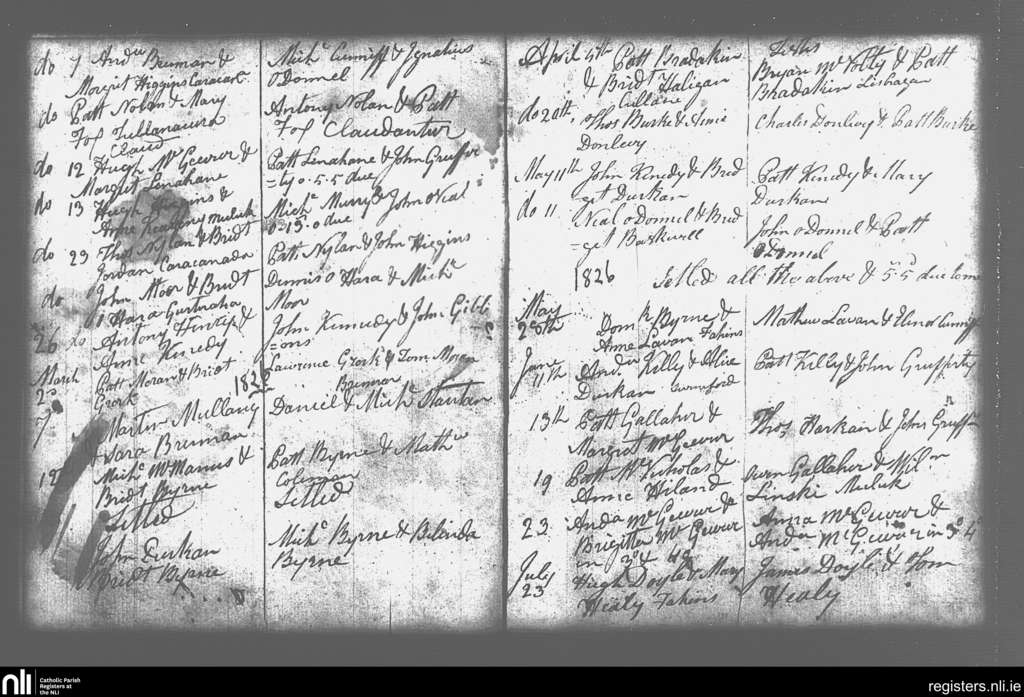 do 7 Andw Brunan &
Margit Higgins Caracast
do Patt Nolan & Mary
Foy Tullanaurra
Claud
do 12 Hugh Mc Gevror &
Margit Lenahane
do 13 Hugh Higgins &
Anne muluk
do 23 Thos Nylan & Bridt
Jordan Caracanada
do John Moor & Bridt
O Hara Gurtnaha
26 do Antony &
Ane Kinedy
March
2d Patt Moran & Bridt
Grork 182
7 Martin Mullany
Sara Brunan
12 Michl McManus &
Bridt Byrne
Setled
John Durkan
Bridt Byrne
Michl Cunniff & Ignatius
O Donnel
Antony Nolan & Patt
Foy Claudantur
Patt Lenahane & John Gruffe
=ty 0.5.5 due
Michl Murry & John O Neal
0.13.0 due
Patt Nylan & John Higgins
Dennis O Hara & Michl
Moor
John Kennedy & John Gibb
=ons
Lawrence Grork & Tom Moran
Brunan
Daniel & Michl Stantan
Patt Byrne & Mathw
Coleman
Setled
Michl Byrne & Belinda
Byrne
April 4th Patt Bradakin
& Bridt Haligan
Cullane
do 20th, Thos Burke & Anne
Donlevy
May 11th John Kinedy & Brid
=get Durkan
do 11 Neal o Donnel & Brid
=get Baskwill
1826 Setled all the above & 5-5d due
May
28th Domk Byrne &
Anne Lavan Fakins
June
11th Andw Killy & Alice
Durkan
13th Patt Gallaher &
Margret McGevor
19 Patt McNicholas &
Annie Hiland
23 Andw McGevor &
Brigitta McGevor
in 3o & 4o
July
23 Hugh Doyle & Mary
Healy Fakins
Tests
Bryan Mc Polty & Patt
Bradakin Lishagan
Charles Donlevy & Patt Burke
Patt Kinedy & Mary
Durkan
John o Donnel & Patt
O Donnel
Mathew Lavan & Cunniff
Patt Killy & John Gruffirty
Thos Harkan & John Gruffn
Owen Gallaher & Wilm
Linski Muluk
Anna McGevor &
Andw McGevor in 3o 4o
James Doyle & Thom
Healy
nli
Catholic Parish
Registers at
the NLI
registers.nli.ie